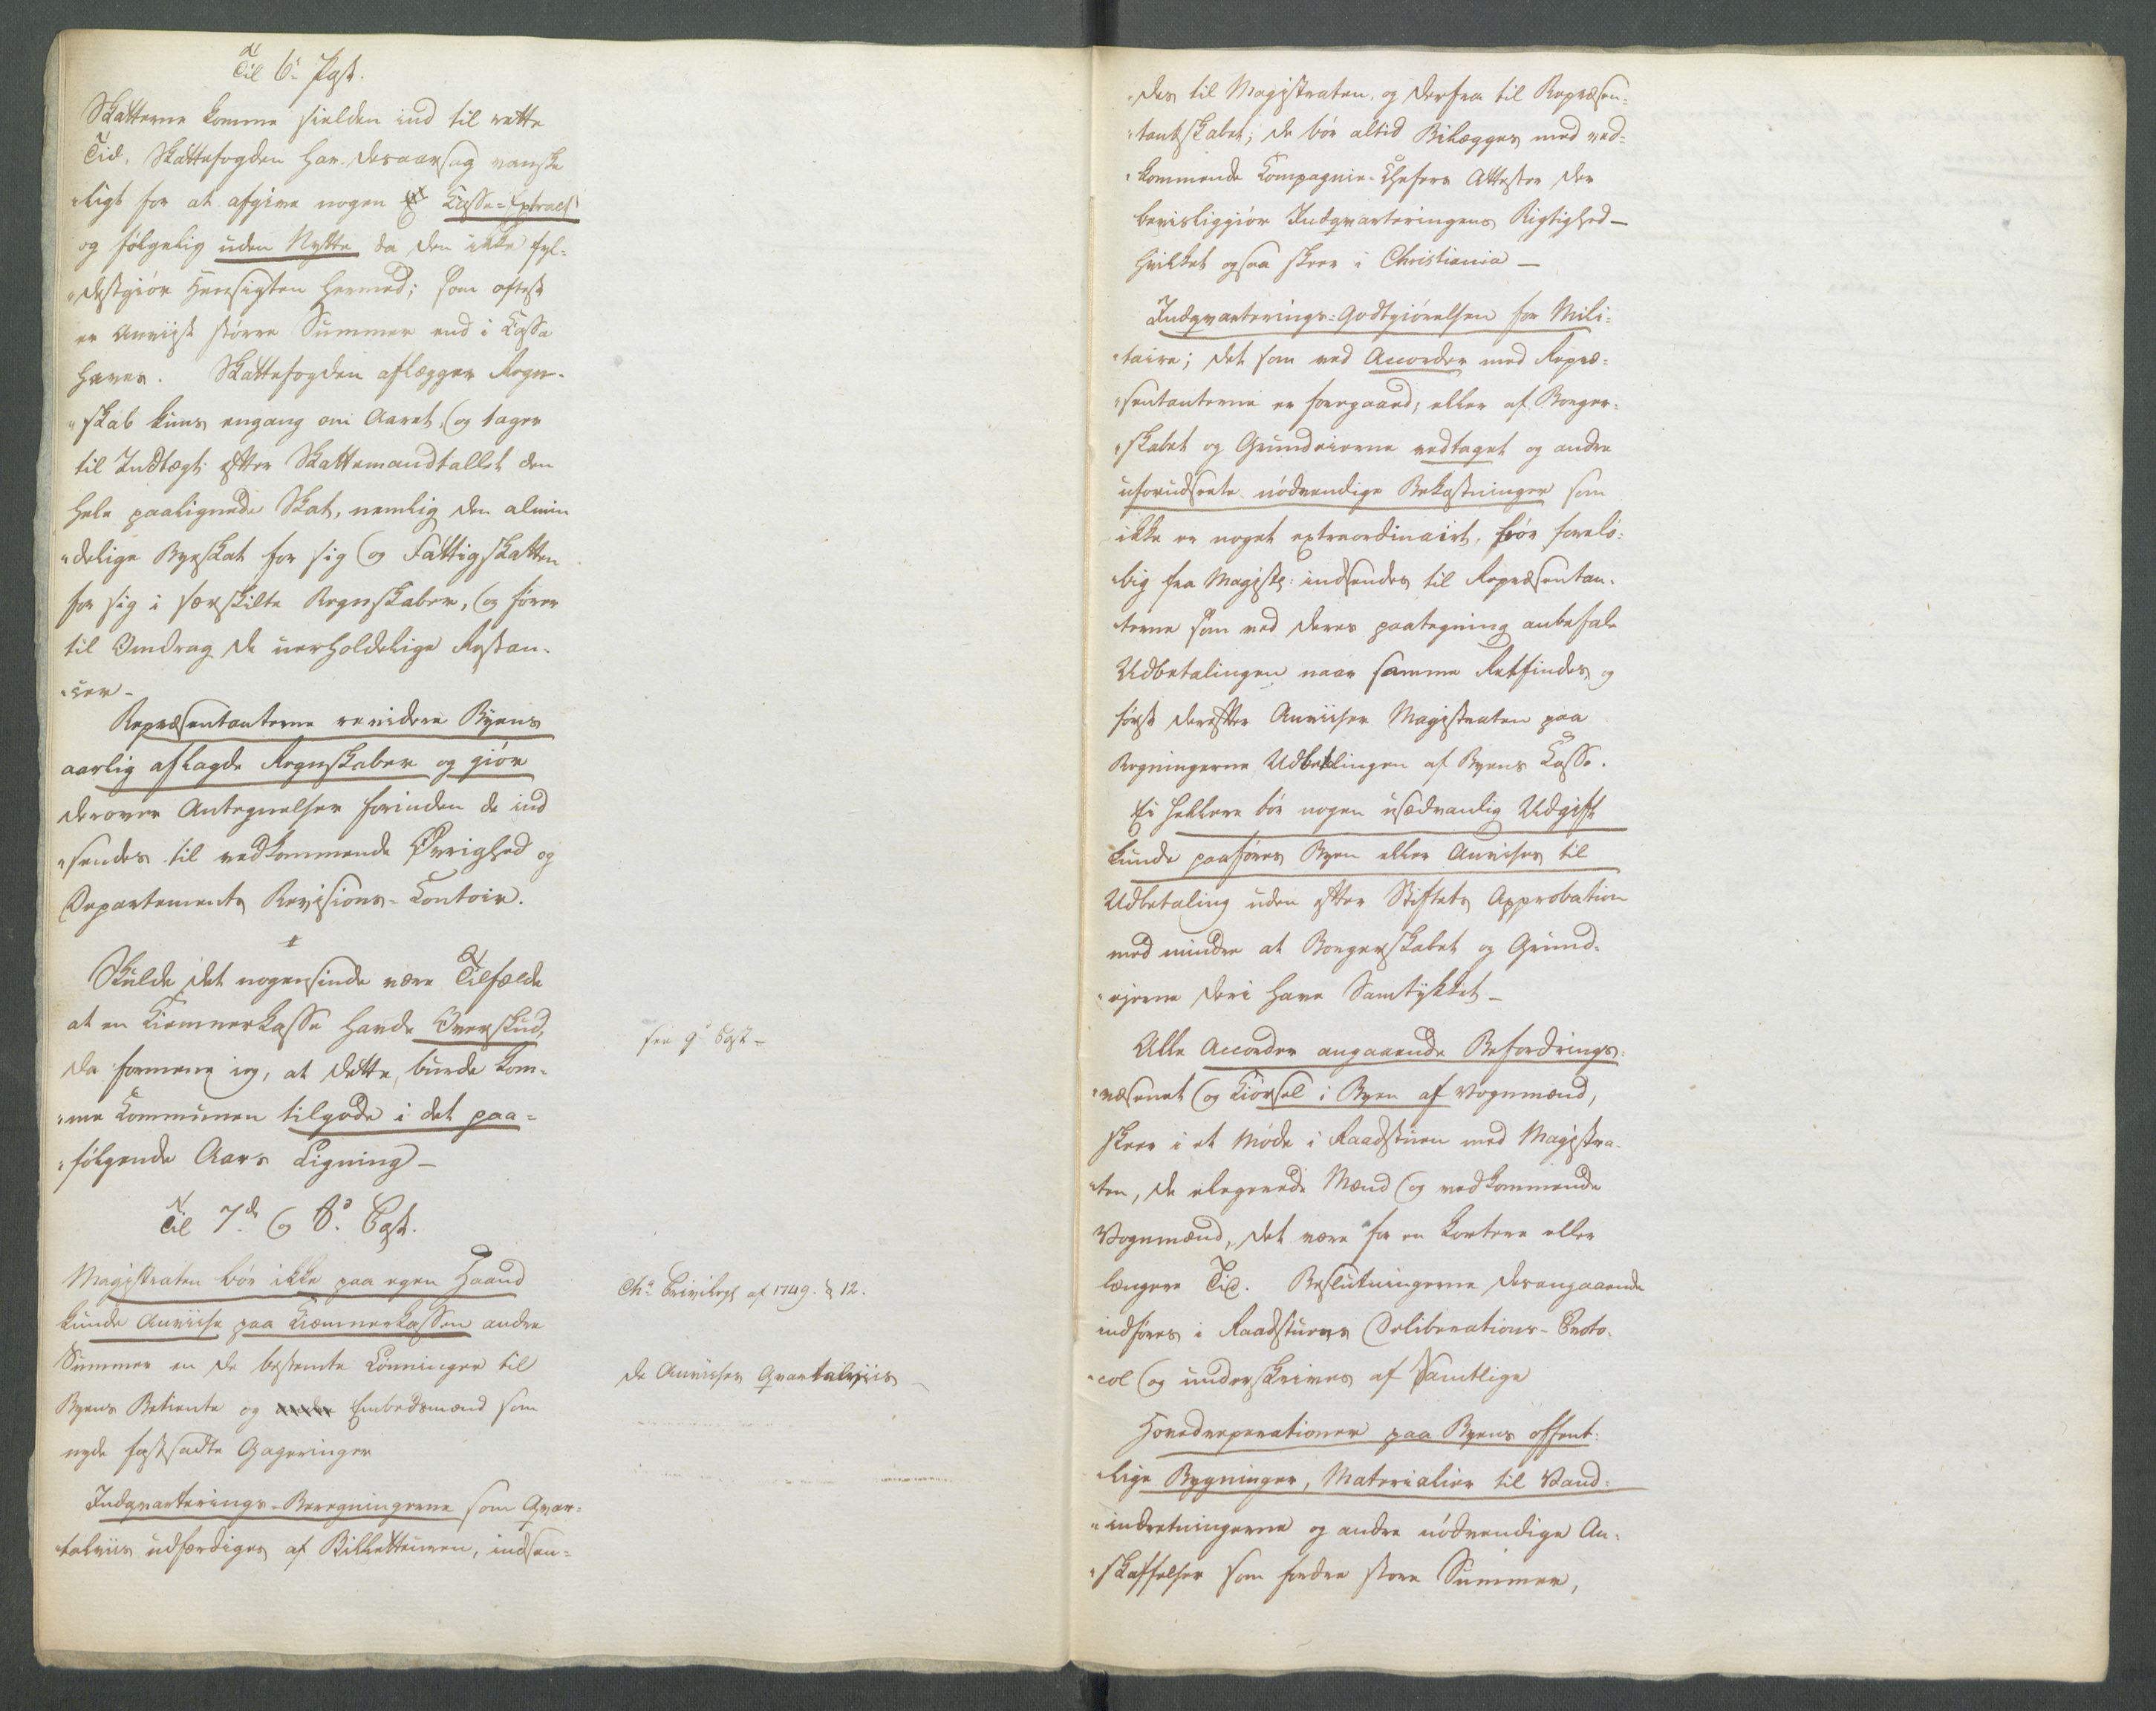 Til 6te Pgst.
Skatterne komme sielden ind til rette
Tid, Skattefogden har desaarsag vanske
"ligt for at afgive nogen Casse-Extract
og følgelig uden Nytte da den ikke fyl-
"destgiør Hensigten hermed; som oftest
er Anviist større Summer end i Cassa
haves. Skattefogden aflægger Regn-
"skab kuns engang om Aaret, og tager
til Indtægt efter Skattemandtallet den
hele paalignede Skat, nemlig den almin
"delige Byeskat for sig og Fattigskatten
for sig i særskilte Regnskaber, og fører
til Omdrag de uerholdelige Restan-
"cer-
Repræsentanterne revidere Byens
aarlig aflagde Regnskaber og giør
derover Antegnelser forinden de ind
"sendes til vedkommende Øvrighed og
Departements Revisions-Contoir.
Skulde det nogensinde være Tilfælde
at en Kiemnerkasse havde Overskud,
da formener ieg, at dette burde kom-
"me Kommunen tilgode i det paa-
"følgende Aars Ligning-
see 9de Post-
Til 7de og 8de Post.
Magistraten bør ikke paa egen Haand
kunde Anviise paa Kiæmnerkassen andre
Summer en de bestemte Lønninger til
Byens Betiente og Embedsmænd som
nyde fastsadte Gageringer
Cha Privileg af 1749. § 12.
de Anviises Qvartaliis
Indqvarterings-Beregningerne som Qvar-
"taliis udfærdiges af Billetteuren, indsen-
"des til Magistraten, og derfra til Repræsen-
"tantskabet; de bør altid Bilægges med ved-
"kommende Compagnie-Chefers Attester der
bevisliggiør Indqvarteringens Rigtighed-
hvilket ogsaa skeer i Christiania-
Indqvarterings-Godtgiørelsen for Mili-
"taire; det som ved Accorder med Repræ-
"sentanterne er foregaaed, eller af Borger-
"skabet og Grundeierne vedtaget og andre
uforudseete nødvendige Bekostninger som
ikke er noget extraordinairt, bør forelø-
"big fra Magistr: indsendes til Repræsentan-
"terne som ved deres paategning anbefale
Udbetalingen naar samme Retfindes, og
først derefter Anviiser Magistraten paa
Regningerne Udbetalingen af Byens Casse.
Ei hellere bør nogen usædvanlig Udgift
kunde paaføres Byen eller Anvises til
Udbetaling uden efter Stiftets Approbation
med mindre at Borgerskabet og Grund-
"ejerne deri have Samtykket-
Alle Accorder angaaende Befordrings-
"væsenet og Kiørsel i Byen af Vognmænd,
skeer i et Møde i Raadstuen med Magistra-
"ten, de elegerede Mænd og vedkommende
Vognmænd, det være for en kortere eller
længere Tid. Beslutningerne desangaaende
indføres i Raadstuens Deliberations-Proto-
"col og underskrives af Samtlige
Hovedreperationer paa Byens offent-
"lige Bygninger, Materialier til Vand-
"indretningerne og andre nødvendige An-
"skaffelser som fordre store Summer,